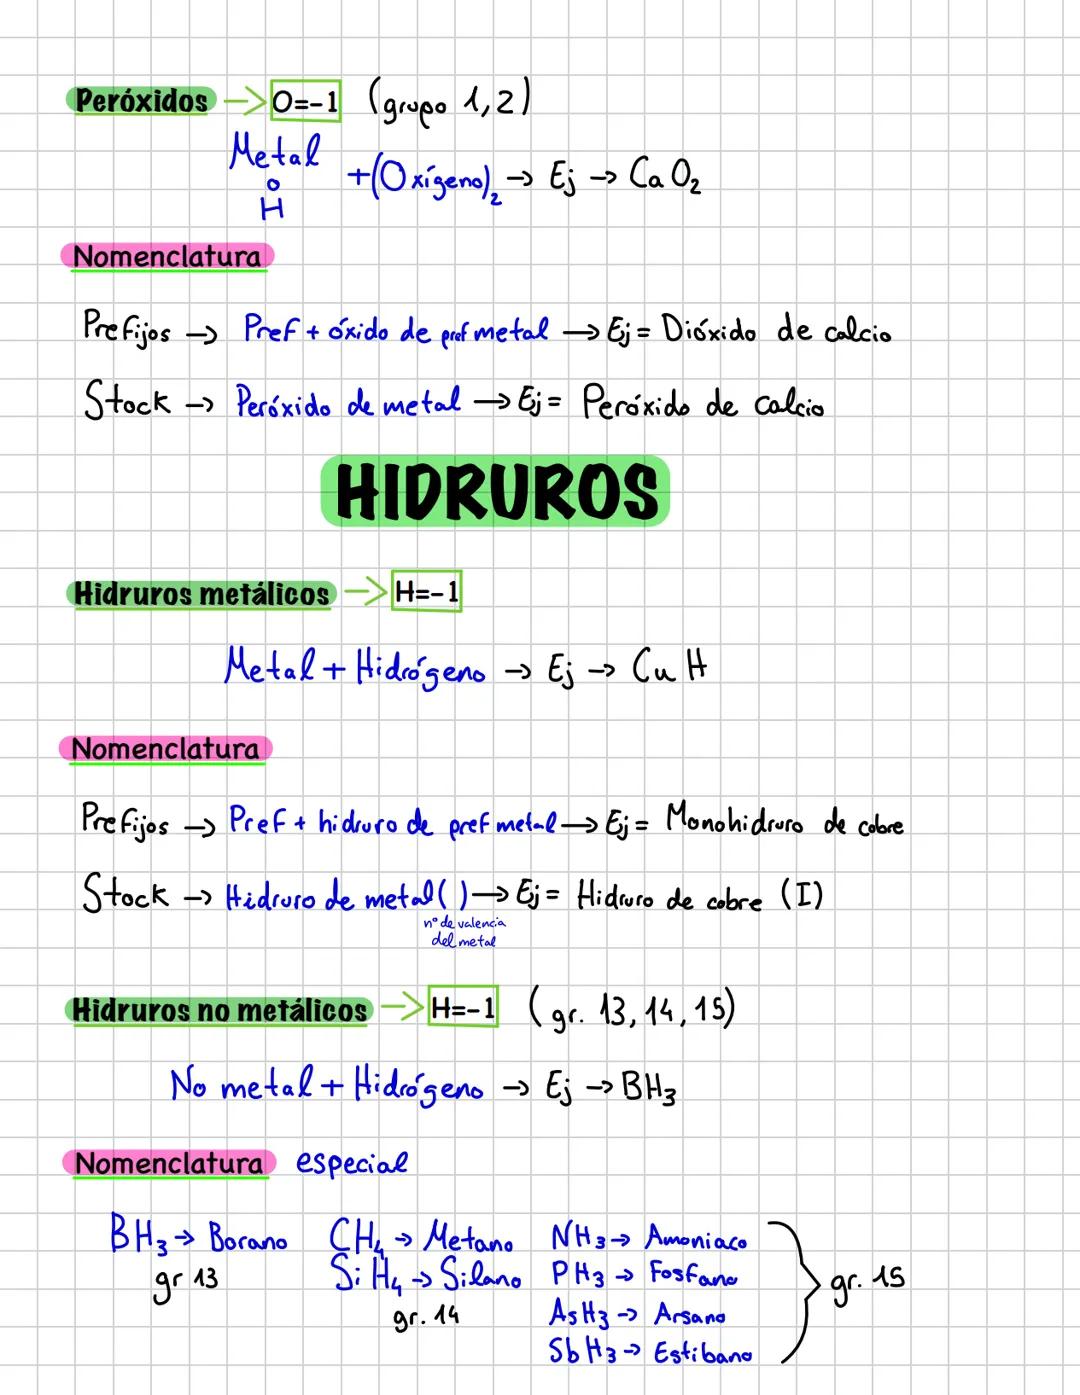 Peróxidos → O=-1 (grupo 1,2)
Metal o H +(Oxígeno)₂ → Ej → CaO₂
Nomenclatura
Prefijos → Pref + óxido de pref metal → Ej = Dióxido de calcio
Stock → Peróxido de metal → Ej = Peróxido de calcio
HIDRUROS
Hidruros metálicos → H=-1
Metal + Hidrógeno → Ej → CuH
Nomenclatura
Prefijos → Pref + hidruro de pref metal → Ej = Monohidruro de cobre
Stock → Hidruro de metal ( ) → Ej = Hidruro de cobre (I)
nº de valencia
del metal
Hidruros no metálicos → H=-1 (gr. 13, 14, 15)
No metal + Hidrógeno → Ej → BH₃
Nomenclatura especial
BH₃ → Borano CH₄ → Metano NH₃ → Amoniaco
gr 13 SiH₄ → Silano PH₃ → Fosfano gr. 15
gr. 14 AsH₃ → Arsano
SbH₃ → Estibano